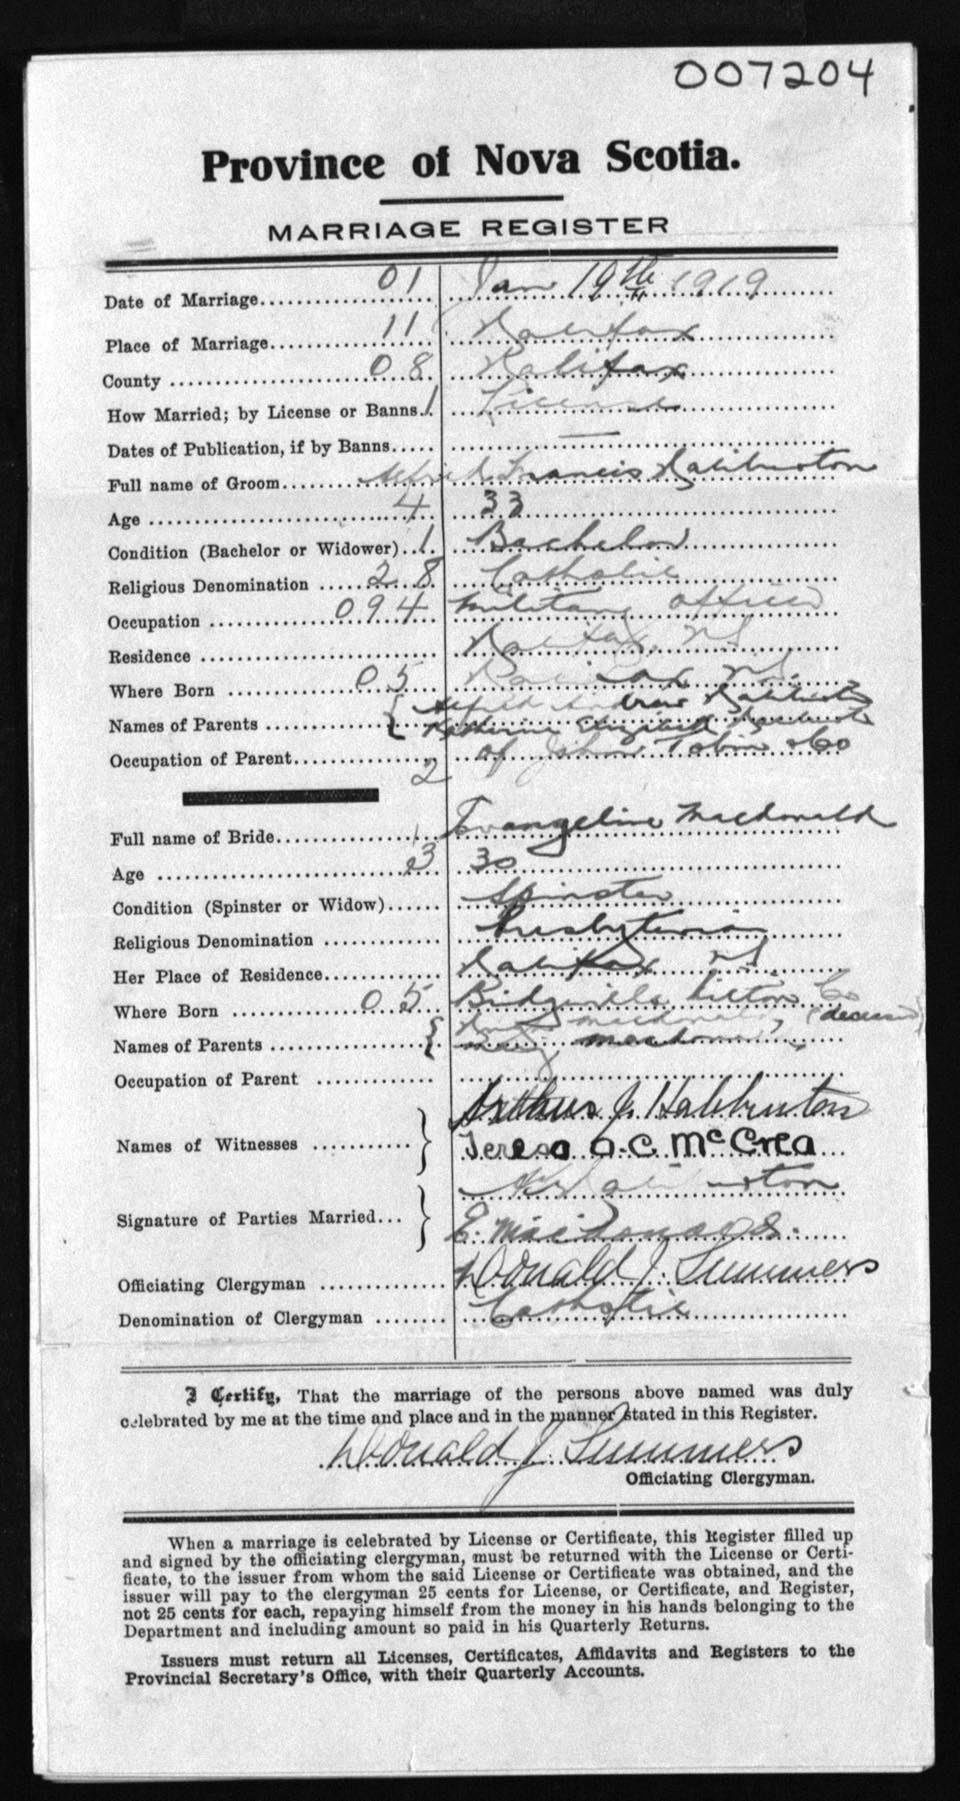 007204
Province of Nova Scotia.
MARRIAGE REGISTER
Date of Marriage 01 Jan 19th 1919
Place of Marriage 11 Halifax
County 08 Halifax
How Married; by License or Banns 1 License
Dates of Publication, if by Banns —
Full name of Groom Alfred Francis Haliburton
Age 4 33
Condition (Bachelor or Widower) 1 Bachelor
Religious Denomination 28 Catholic
Occupation 094 Military officer
Residence Halifax NS
Where Born 05 Halifax NS.
Names of Parents { Alfred Andrew Haliburton
Katherine Elizabeth Haliburton
Occupation of Parent 2 of John Tobin & Co
Full name of Bride 1 Evangeline Macdonald
Age 3 30
Condition (Spinster or Widow) Spinster
Religious Denomination Presbyterian
Her Place of Residence Halifax NS
Where Born 05 Bridgeville Pictou Co
Names of Parents { Macdonald, (deceased)
Macdonald
Occupation of Parent
Names of Witnesses } Arthur J. Haliburton
Teresa A. C. McCrea
Signature of Parties Married } Haliburton
E. MacDonald.
Officiating Clergyman Donald J. Summers
Denomination of Clergyman Catholic
I Certify, That the marriage of the persons above named was duly
celebrated by me at the time and place and in the manner stated in this Register.
Donald J. Summers
Officiating Clergyman.
When a marriage is celebrated by License or Certificate, this Register filled up
and signed by the officiating clergyman, must be returned with the License or Certi-
ficate, to the issuer from whom the said License or Certificate was obtained, and the
issuer will pay to the clergyman 25 cents for License, or Certificate, and Register,
not 25 cents for each, repaying himself from the money in his hands belonging to the
Department and including amount so paid in his Quarterly Returns.
Issuers must return all Licenses, Certificates, Affidavits and Registers to the
Provincial Secretary's Office, with their Quarterly Accounts.